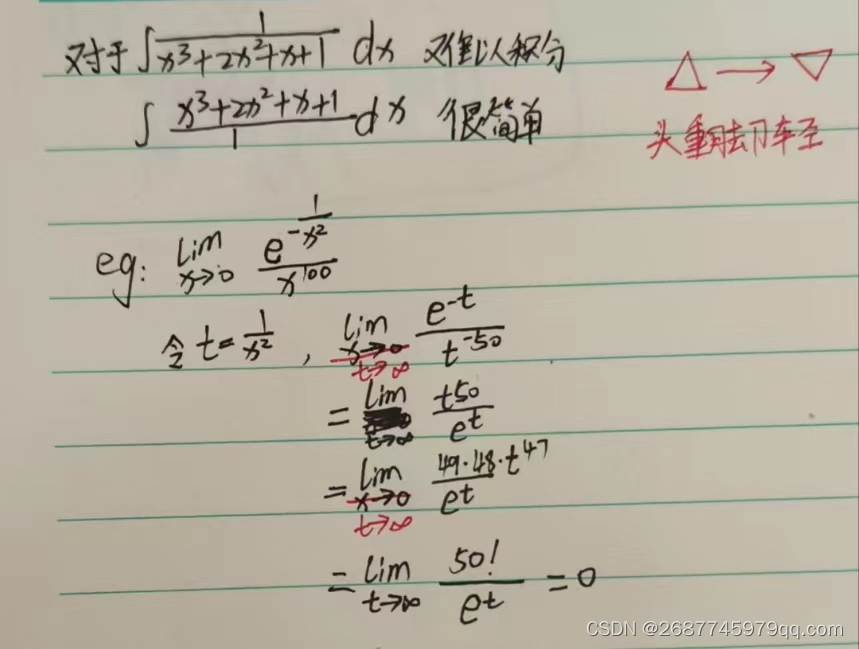 对于 ∫ 1/(x³+2x²+x+1) dx 难以积分
∫ (x³+2x²+x+1)/1 dx 很简单
△ → ▽
头重脚轻
eg: lim x→0 e^(-1/x²) / x^100
令 t = 1/x² , lim x→0 t→∞ e^-t / t^-50
= lim t→∞ t^50 / e^t
= lim x→0 t→∞ 49·48·t^47 / e^t
= lim t→∞ 50! / e^t = 0
CSDN @2687745979qq.com